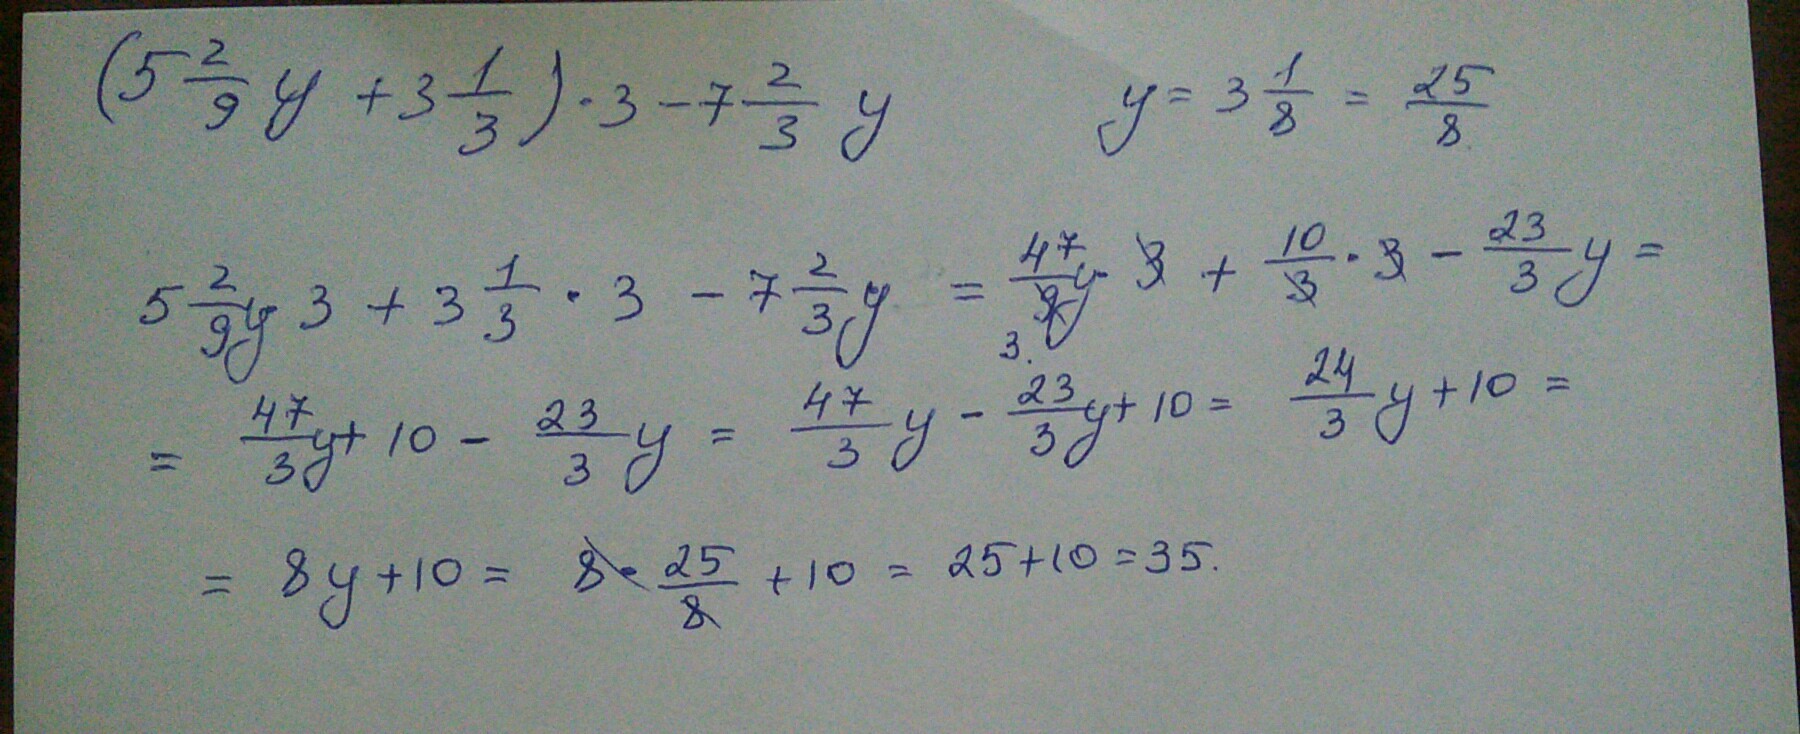 (5 2/9 y + 3 1/3) · 3 - 7 2/3 y y = 3 1/8 = 25/8
5 2/9 y 3 + 3 1/3 · 3 - 7 2/3 y = 47/9 y · 3 + 10/3 · 3 - 23/3 y =
3.
= 47/3 y + 10 - 23/3 y = 47/3 y - 23/3 y + 10 = 24/3 y + 10 =
= 8y + 10 = 8 · 25/8 + 10 = 25 + 10 = 35.